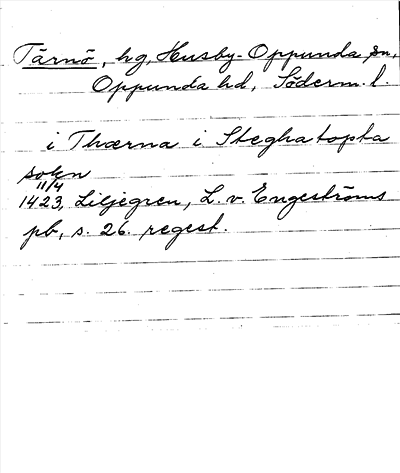 Tärnö, hg, Husby-Oppunda sn,
Oppunda hd, Söderm. l.
i Thærna i Steghatopta
sokn
11/4
1423, Liljegren, L. v. Engeströms
pb, s. 26. regest.